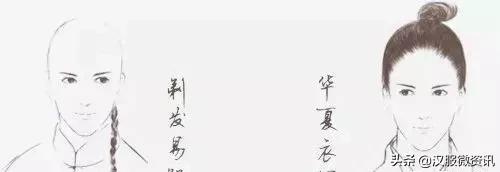 剃发易
华夏衣
头条 @汉服微资讯